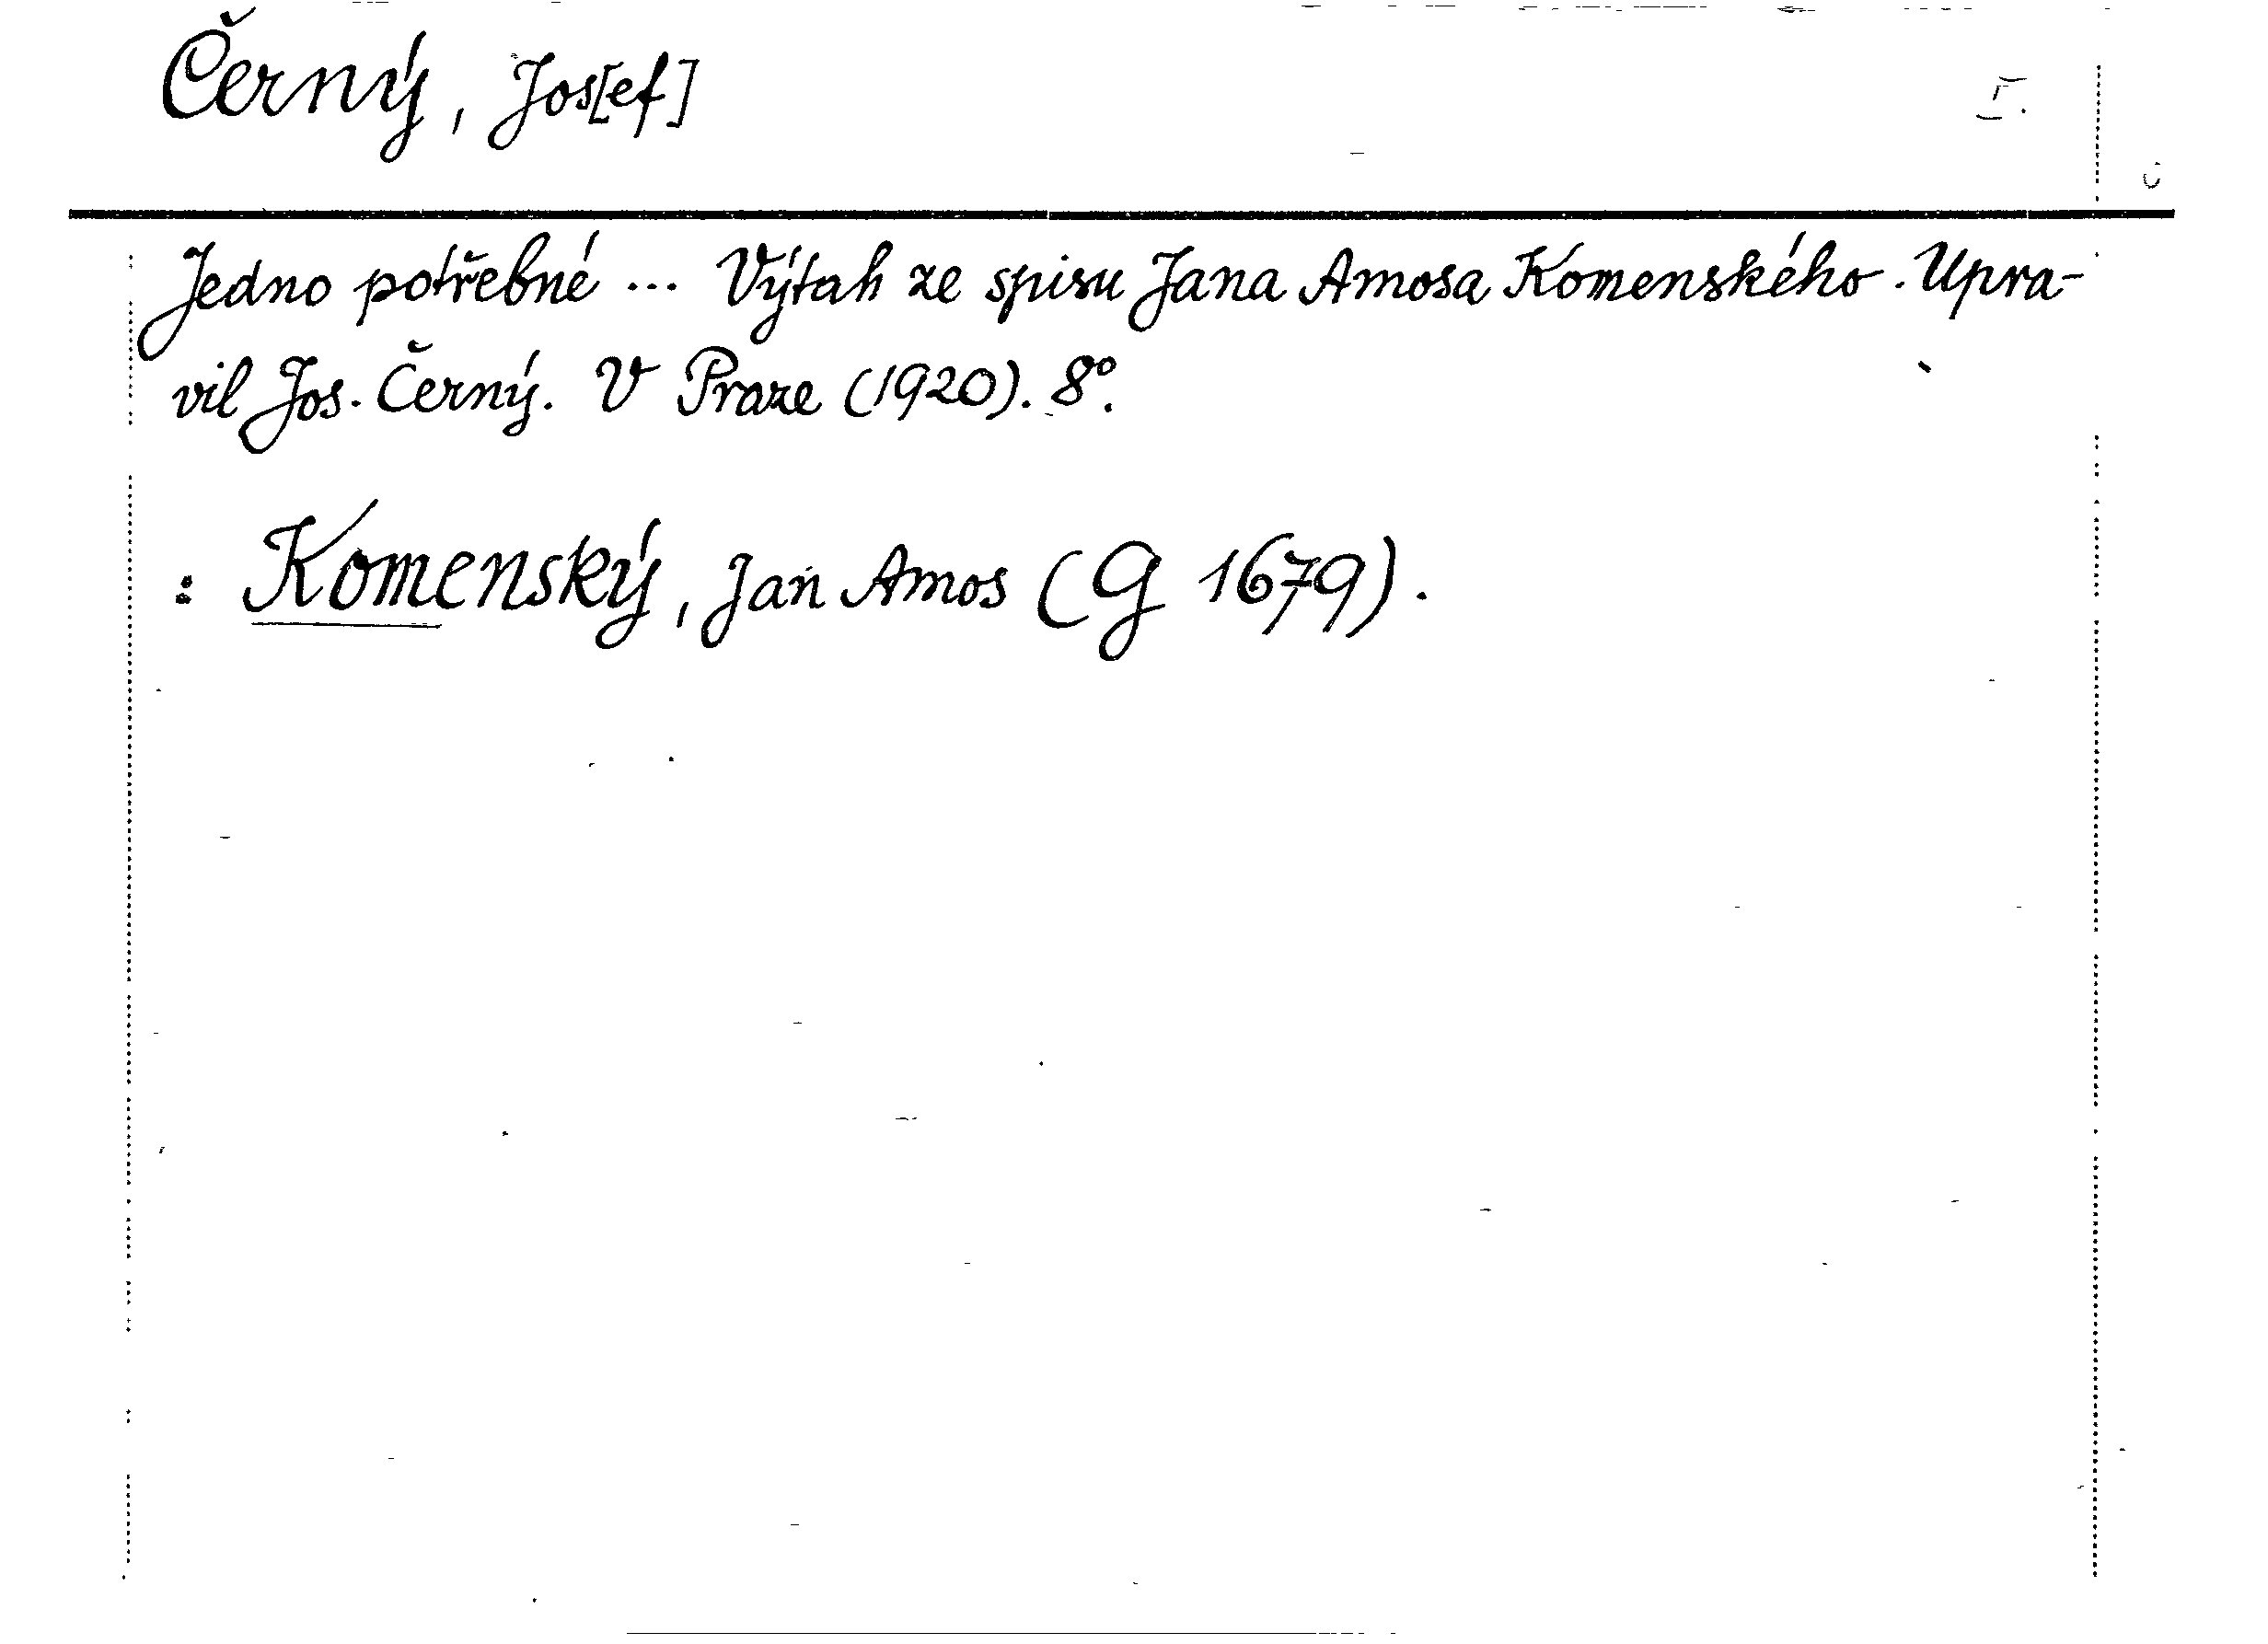 Černý, Jos[ef] I.
Jedno potřebné ... Výtah ze spisu Jana Amosa Komenského. Upra-
vil Jos. Černý. V Praze (1920). 8°.
: Komenský, Jan Amos (G 1679).